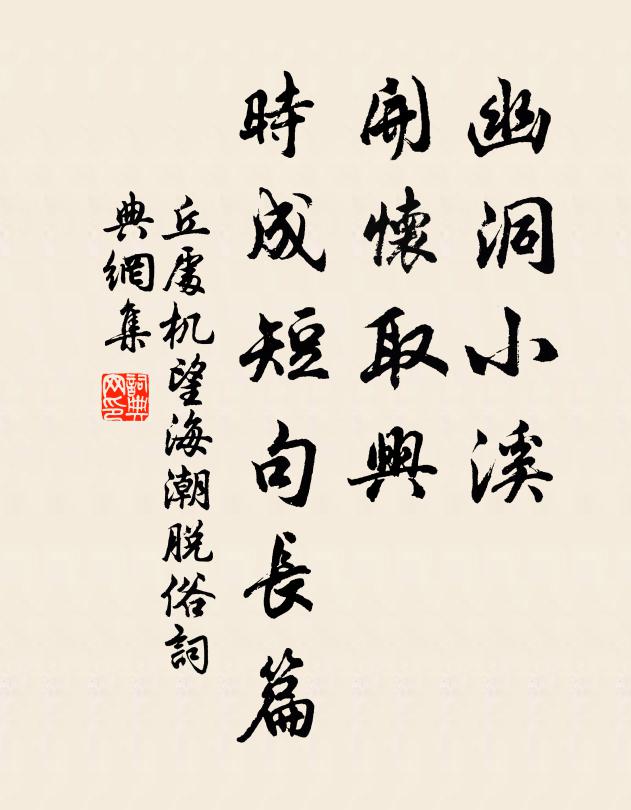 幽洞小溪
開懷取興
時成短句長篇
丘處机望海潮脱俗詞
典網集
詞典网印